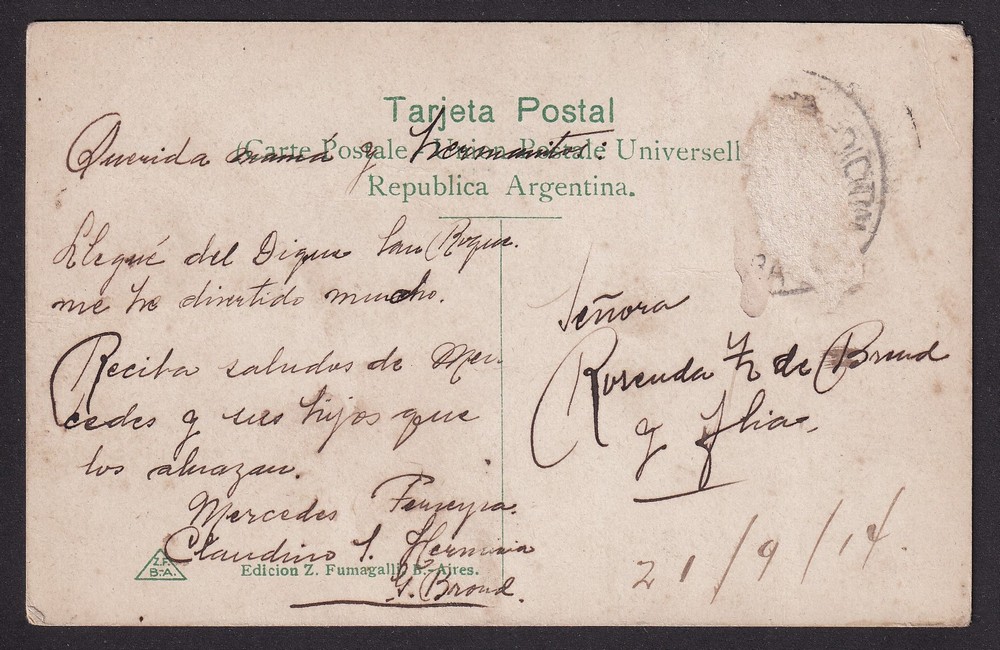 Tarjeta Postal
(Carte Postale - Union Postale Universell
Republica Argentina.
Querida mamá y hermanitos:
Llegué del Dique San Roque.
me he divertido mucho.
Reciba saludos de Mer-
cedes y sus hijos que
los abrazan.
Mercedes Ferreyra.
Claudino S. Herminia
G. Broud.
Z.F.
B.-A.
Edicion Z. Fumagalli, B.-Aires.
Señora
Rosenda Z de Broud
y flia.
21/9/14.